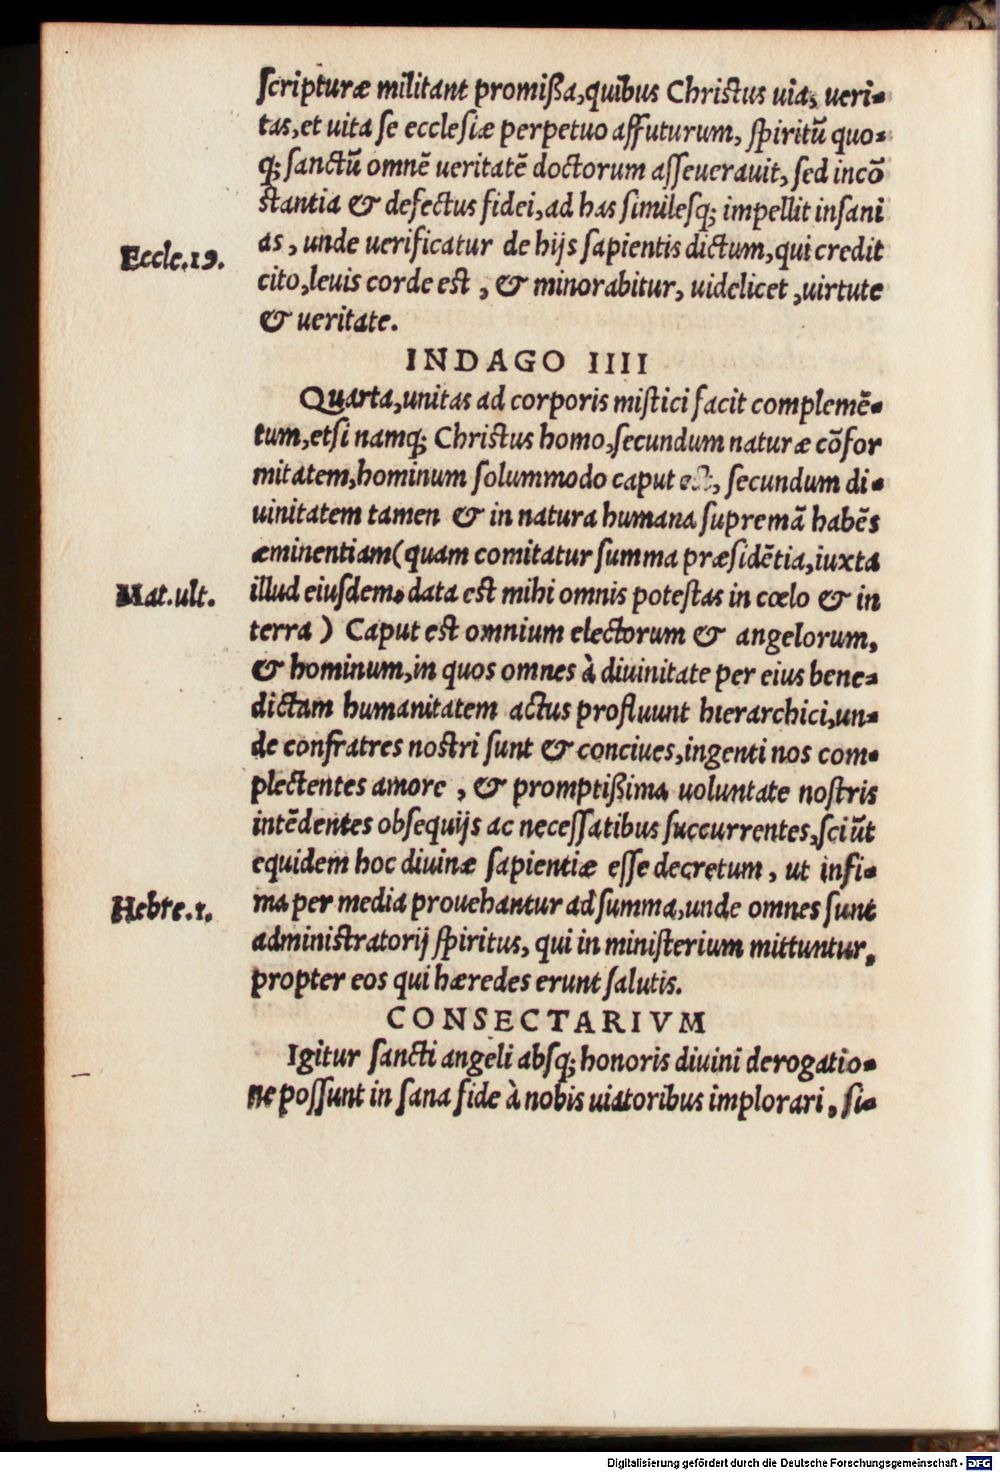 scripturæ militant promißa,quibus Christus uia, ueri-
tas,et uita se ecclesiæ perpetuo affuturum, spiritū quo-
q; sanctū omnē ueritatē doctorum asseuerauit, sed incō
stantia & defectus fidei,ad has similesq; impellit insani
Eccle.19. as, unde uerificatur de hijs sapientis dictum,qui credit
cito,leuis corde est , & minorabitur, uidelicet ,uirtute
& ueritate.
INDAGO IIII
Quarta,unitas ad corporis mistici facit complemē-
tum,etsi namq; Christus homo,secundum naturæ cōfor
mitatem,hominum solummodo caput est, secundum di-
uinitatem tamen & in natura humana supremā habēs
æminentiam(quam comitatur summa præsidētia,iuxta
Mat.ult. illud eiusdem. data est mihi omnis potestas in cœlo & in
terra ) Caput est omnium electorum & angelorum,
& hominum,in quos omnes à diuinitate per eius bene-
dictam humanitatem actus profluunt hierarchici,un-
de confratres nostri sunt & conciues,ingenti nos com-
plectentes amore , & promptißima uoluntate nostris
intēdentes obsequijs ac necessatibus succurrentes,sciūt
equidem hoc diuinæ sapientiæ esse decretum , ut infi-
Hebre.1. ma per media prouehantur ad summa,unde omnes sunt
administratorij spiritus, qui in ministerium mittuntur,
propter eos qui hæredes erunt salutis.
CONSECTARIVM
Igitur sancti angeli absq; honoris diuini derogatio-
ne possunt in sana fide à nobis uiatoribus implorari, si-
Digitalisierung gefördert durch die Deutsche Forschungsgemeinschaft - DFG